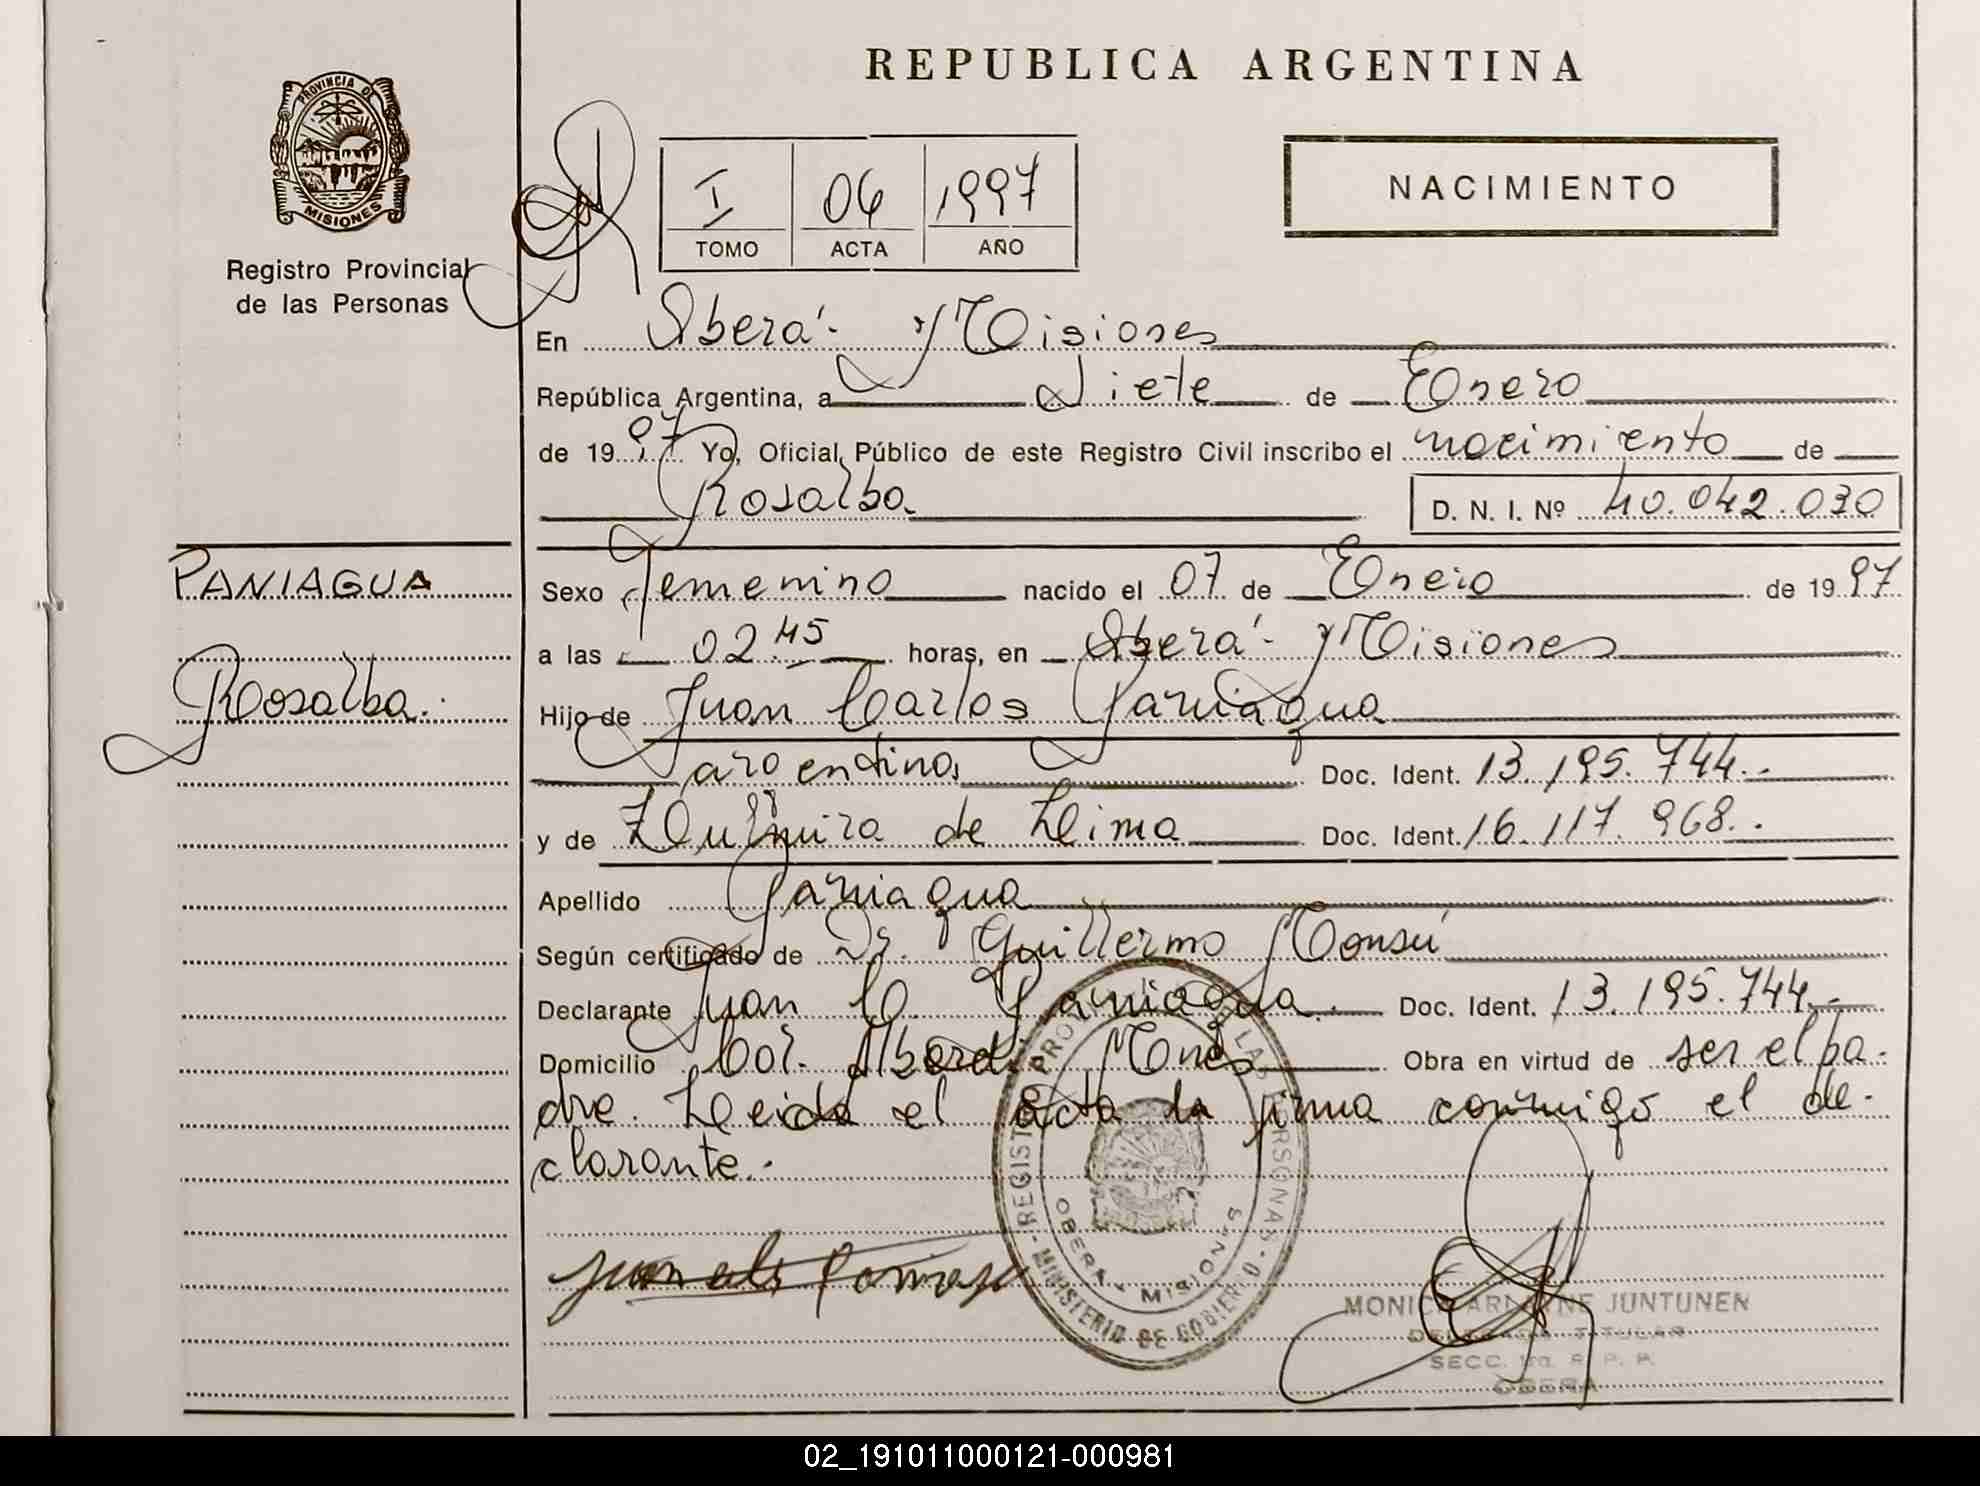 REPUBLICA ARGENTINA
PROVINCIA DE
MISIONES
Registro Provincial
de las Personas
I 06 1997
TOMO ACTA AÑO
NACIMIENTO
En Oberá - Misiones
República Argentina, a Siete de Enero
de 1997 Yo, Oficial Público de este Registro Civil inscribo el nacimiento de
Rosalba
D. N. I. Nº 40.042.030
PANIAGUA
Rosalba.
Sexo Femenino nacido el 07 de Enero de 1997
a las 02 45 horas, en Oberá - Misiones
Hijo de Juan Carlos Paniagua
argentino, Doc. Ident. 13.195.744.-
y de Zulmira de Lima Doc. Ident. 16.117.968.-
Apellido Paniagua
Según certificado de Dr. Guillermo Monsú
Declarante Juan C. Paniagua.- Doc. Ident. 13.195.744.-
Domicilio Col. Alberdi Mnes Obra en virtud de ser el pa-
dre. Leida el acta la firma conmigo el de-
clarante.-
REGISTRO PROVINCIAL DE LAS PERSONAS - MINISTERIO DE GOBIERNO -
OBERA - MISIONES
MONICA ARLEYNE JUNTUNEN
DELEGADA TITULAR
SECC. 1ra. R. P. P.
OBERA
02_191011000121-000981